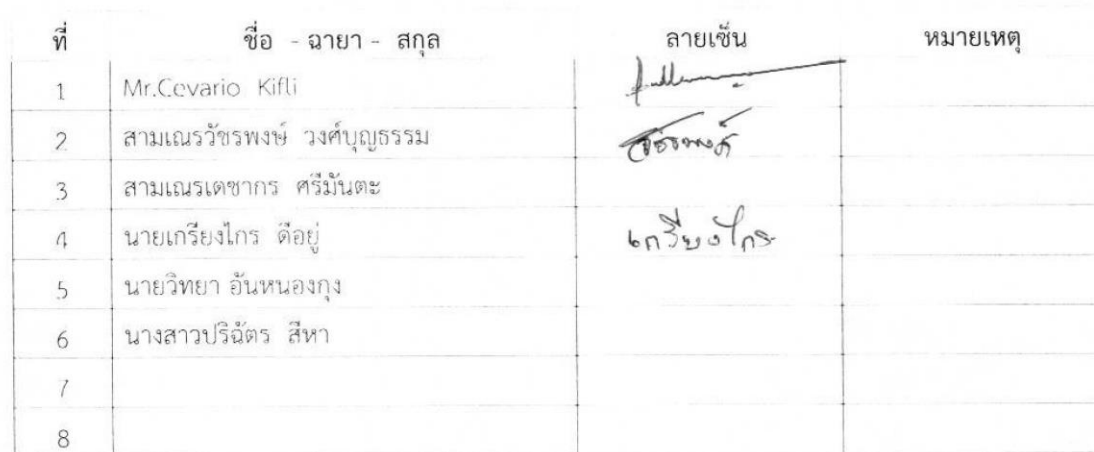 ที่ ชื่อ - ฉายา - สกุล ลายเซ็น หมายเหตุ
1 Mr.Cevario Kifli
2 สามเณรวัชรพงษ์ วงศ์บุญธรรม วัชรพงศ์
3 สามเณรเดชากร ศรีมันตะ
4 นายเกรียงไกร ดีอยู่ เกรียงไกร
5 นายวิทยา อันหนองกุง
6 นางสาวปริฉัตร สีหา
7
8